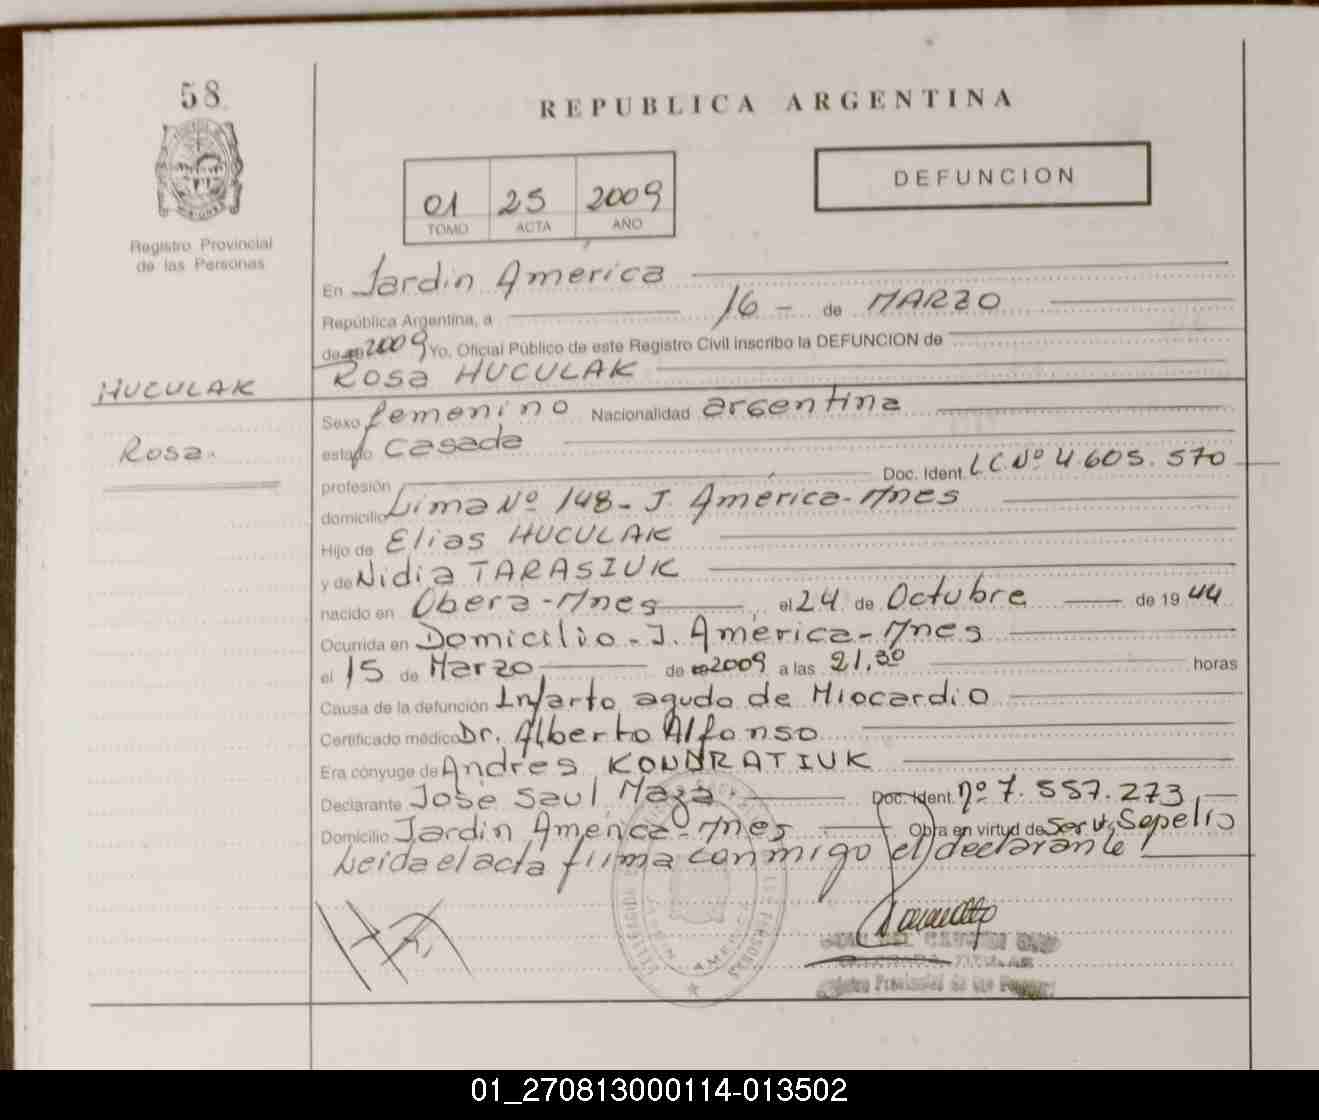 58
REPUBLICA ARGENTINA
DEFUNCION
01 25 2009
TOMO ACTA AÑO
Registro Provincial
de las Personas
En Jardin América
República Argentina, a 16 - de MARZO
de 2009 Yo. Oficial Público de este Registro Civil inscribo la DEFUNCION de
HUCULAK Rosa HUCULAK
Sexo femenino Nacionalidad argentina
Rosa. estado Casada
profesión Doc. Ident. L.C. Nº 4.605.570
domicilio Lima Nº 148 - J. America - Mnes
Hijo de Elias HUCULAK
y de Nidia TARASIUK
nacido en Obera - Mnes el 24 de Octubre de 19 44
Ocurrida en Domicilio - J. América - Mnes
el 15 de Marzo de 2009 a las 21,30 horas
Causa de la defunción Infarto agudo de Miocardio
Certificado médico Dr. Alberto Alfonso
Era cónyuge de Andres KONDRATIUK
Declarante José Saul Maza Doc. Ident. nº 7.557.273
Domicilio Jardin America - Mnes Obra en virtud de Serv. Sepelio
Leida el acta firma conmigo el declarante
01_270813000114-013502